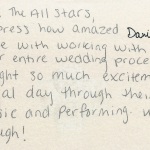 The All Stars,
press how amazed Dari
e with working with
r entire wedding proce
ght so much excitem
al day through their
sic and performing w
ugh!